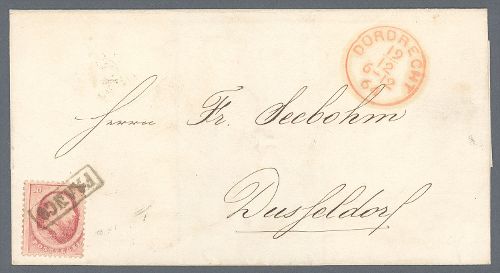 DORDRECHT
12
12
Herrn Fr. Seebohm
FRANCO
Dusseldorf